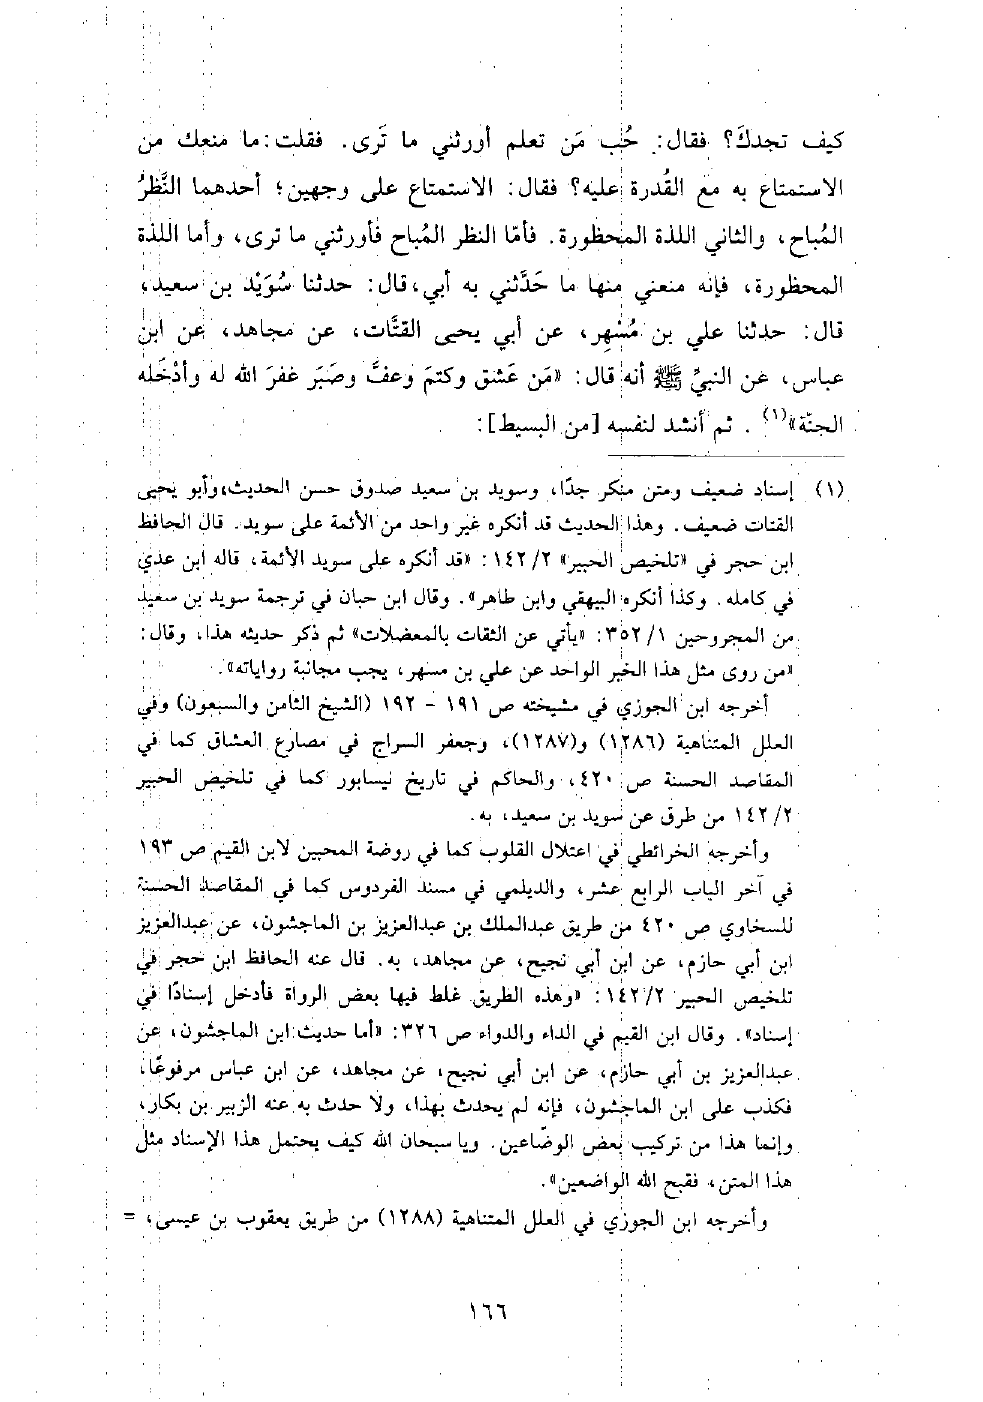 كيف تجدكَ؟ فقال: حُب مَن تعلم أورثني ما تَرى. فقلت: ما منعك من
الاستمتاع به مع القُدرة عليه؟ فقال: الاستمتاع على وجهين؛ أحدهما النَّظرُ
المُباح، والثاني اللذة المحظورة. فأمّا النظر المُباح فأورثني ما ترى، وأما اللذة
المحظورة، فإنه منعني منها ما حَدَّثني به أبي، قال: حدثنا سُوَيْد بن سعيد،
قال: حدثنا علي بن مُسْهِر، عن أبي يحيى القتَّات، عن مجاهد، عن ابن
عباس، عن النبيِّ ﷺ أنه قال: «مَن عَشق وكتمَ وعفَّ وصَبَر غفرَ الله له وأدْخَله
الجنّة»(١). ثم أنشد لنفسه [من البسيط]:
(١) إسناد ضعيف ومتن منكر جدًا، وسويد بن سعيد صدوق حسن الحديث، وأبو يحيى
القتات ضعيف. وهذا الحديث قد أنكره غير واحد من الأئمة على سويد. قال الحافظ
ابن حجر في «تلخيص الحبير» ٢/ ١٤٢: «قد أنكره على سويد الأئمة، قاله ابن عدي
في كامله. وكذا أنكره البيهقي وابن طاهر». وقال ابن حبان في ترجمة سويد بن سعيد
من المجروحين ١/ ٣٥٢: «يأتي عن الثقات بالمعضلات» ثم ذكر حديثه هذا، وقال:
«من روى مثل هذا الخبر الواحد عن علي بن مسهر، يجب مجانبة رواياته».
أخرجه ابن الجوزي في مشيخته ص ١٩١ - ١٩٢ (الشيخ الثامن والسبعون) وفي
العلل المتناهية (١٢٨٦) و(١٢٨٧)، وجعفر السراج في مصارع العشاق كما في
المقاصد الحسنة ص ٤٢٠، والحاكم في تاريخ نيسابور كما في تلخيص الحبير
٢/ ١٤٢ من طرق عن سويد بن سعيد، به.
وأخرجه الخرائطي في اعتلال القلوب كما في روضة المحبين لابن القيم ص ١٩٣
في آخر الباب الرابع عشر، والديلمي في مسند الفردوس كما في المقاصد الحسنة
للسخاوي ص ٤٢٠ من طريق عبدالملك بن عبدالعزيز بن الماجشون، عن عبدالعزيز
ابن أبي حازم، عن ابن أبي نجيح، عن مجاهد، به. قال عنه الحافظ ابن حجر في
تلخيص الحبير ٢/ ١٤٢: «وهذه الطريق غلط فيها بعض الرواة فأدخل إسنادًا في
إسناد». وقال ابن القيم في الداء والدواء ص ٣٢٦: «أما حديث ابن الماجشون، عن
عبدالعزيز بن أبي حازم، عن ابن أبي نجيح، عن مجاهد، عن ابن عباس مرفوعًا،
فكذب على ابن الماجشون، فإنه لم يحدث بهذا، ولا حدث به عنه الزبير بن بكار،
وإنما هذا من تركيب بعض الوضّاعين. ويا سبحان الله كيف يحتمل هذا الإسناد مثل
هذا المتن، فقبح الله الواضعين».
وأخرجه ابن الجوزي في العلل المتناهية (١٢٨٨) من طريق يعقوب بن عيسى، =
١٦٦